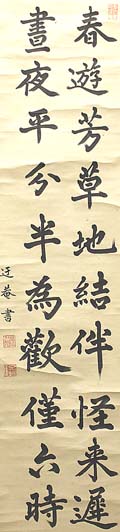 春遊芳草地結伴怪来遲
晝夜平分半為歡僅六時
迂菴書